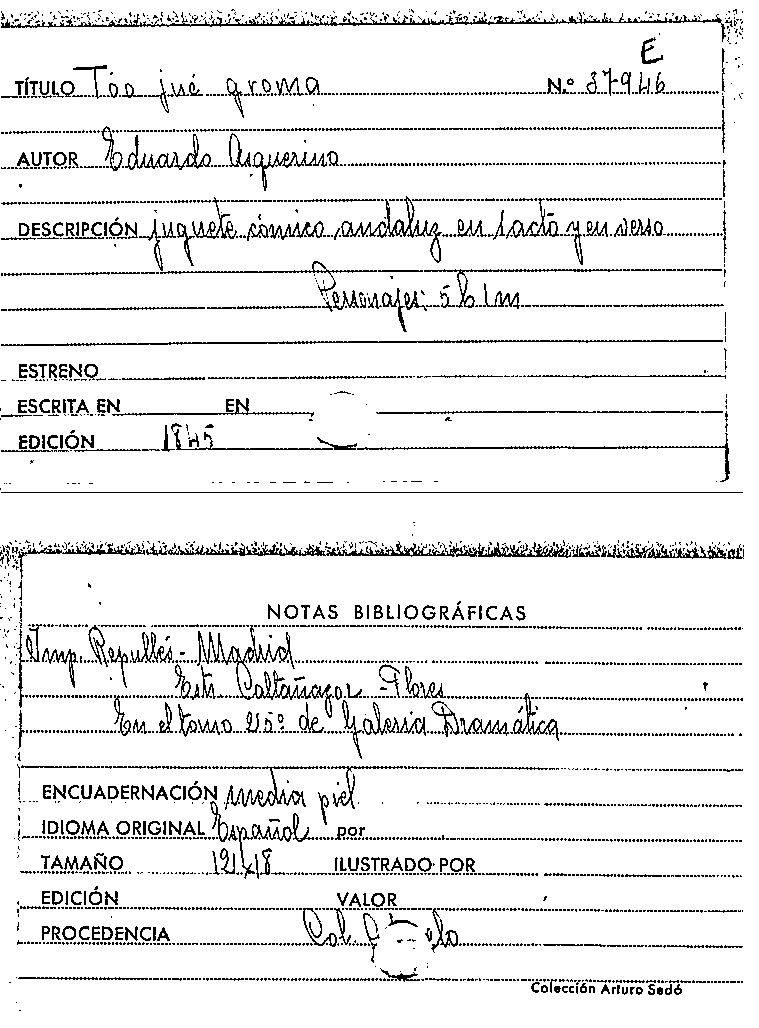 E
TÍTULO Tóo jué groma N.º 37946
AUTOR Eduardo Asquerino
DESCRIPCIÓN juguete cómico andaluz en 1 acto y en verso
Personajes: 5 h 1 m
ESTRENO
ESCRITA EN EN
EDICIÓN 1845
NOTAS BIBLIOGRÁFICAS
Imp. Repullés - Madrid
Edit. Caltañazor - Flores
En el tomo 25º de Galeria Dramática
ENCUADERNACIÓN media piel
IDIOMA ORIGINAL Español por
TAMAÑO 121x18 ILUSTRADO POR
EDICIÓN VALOR
PROCEDENCIA Col.
Colección Arturo Sedó